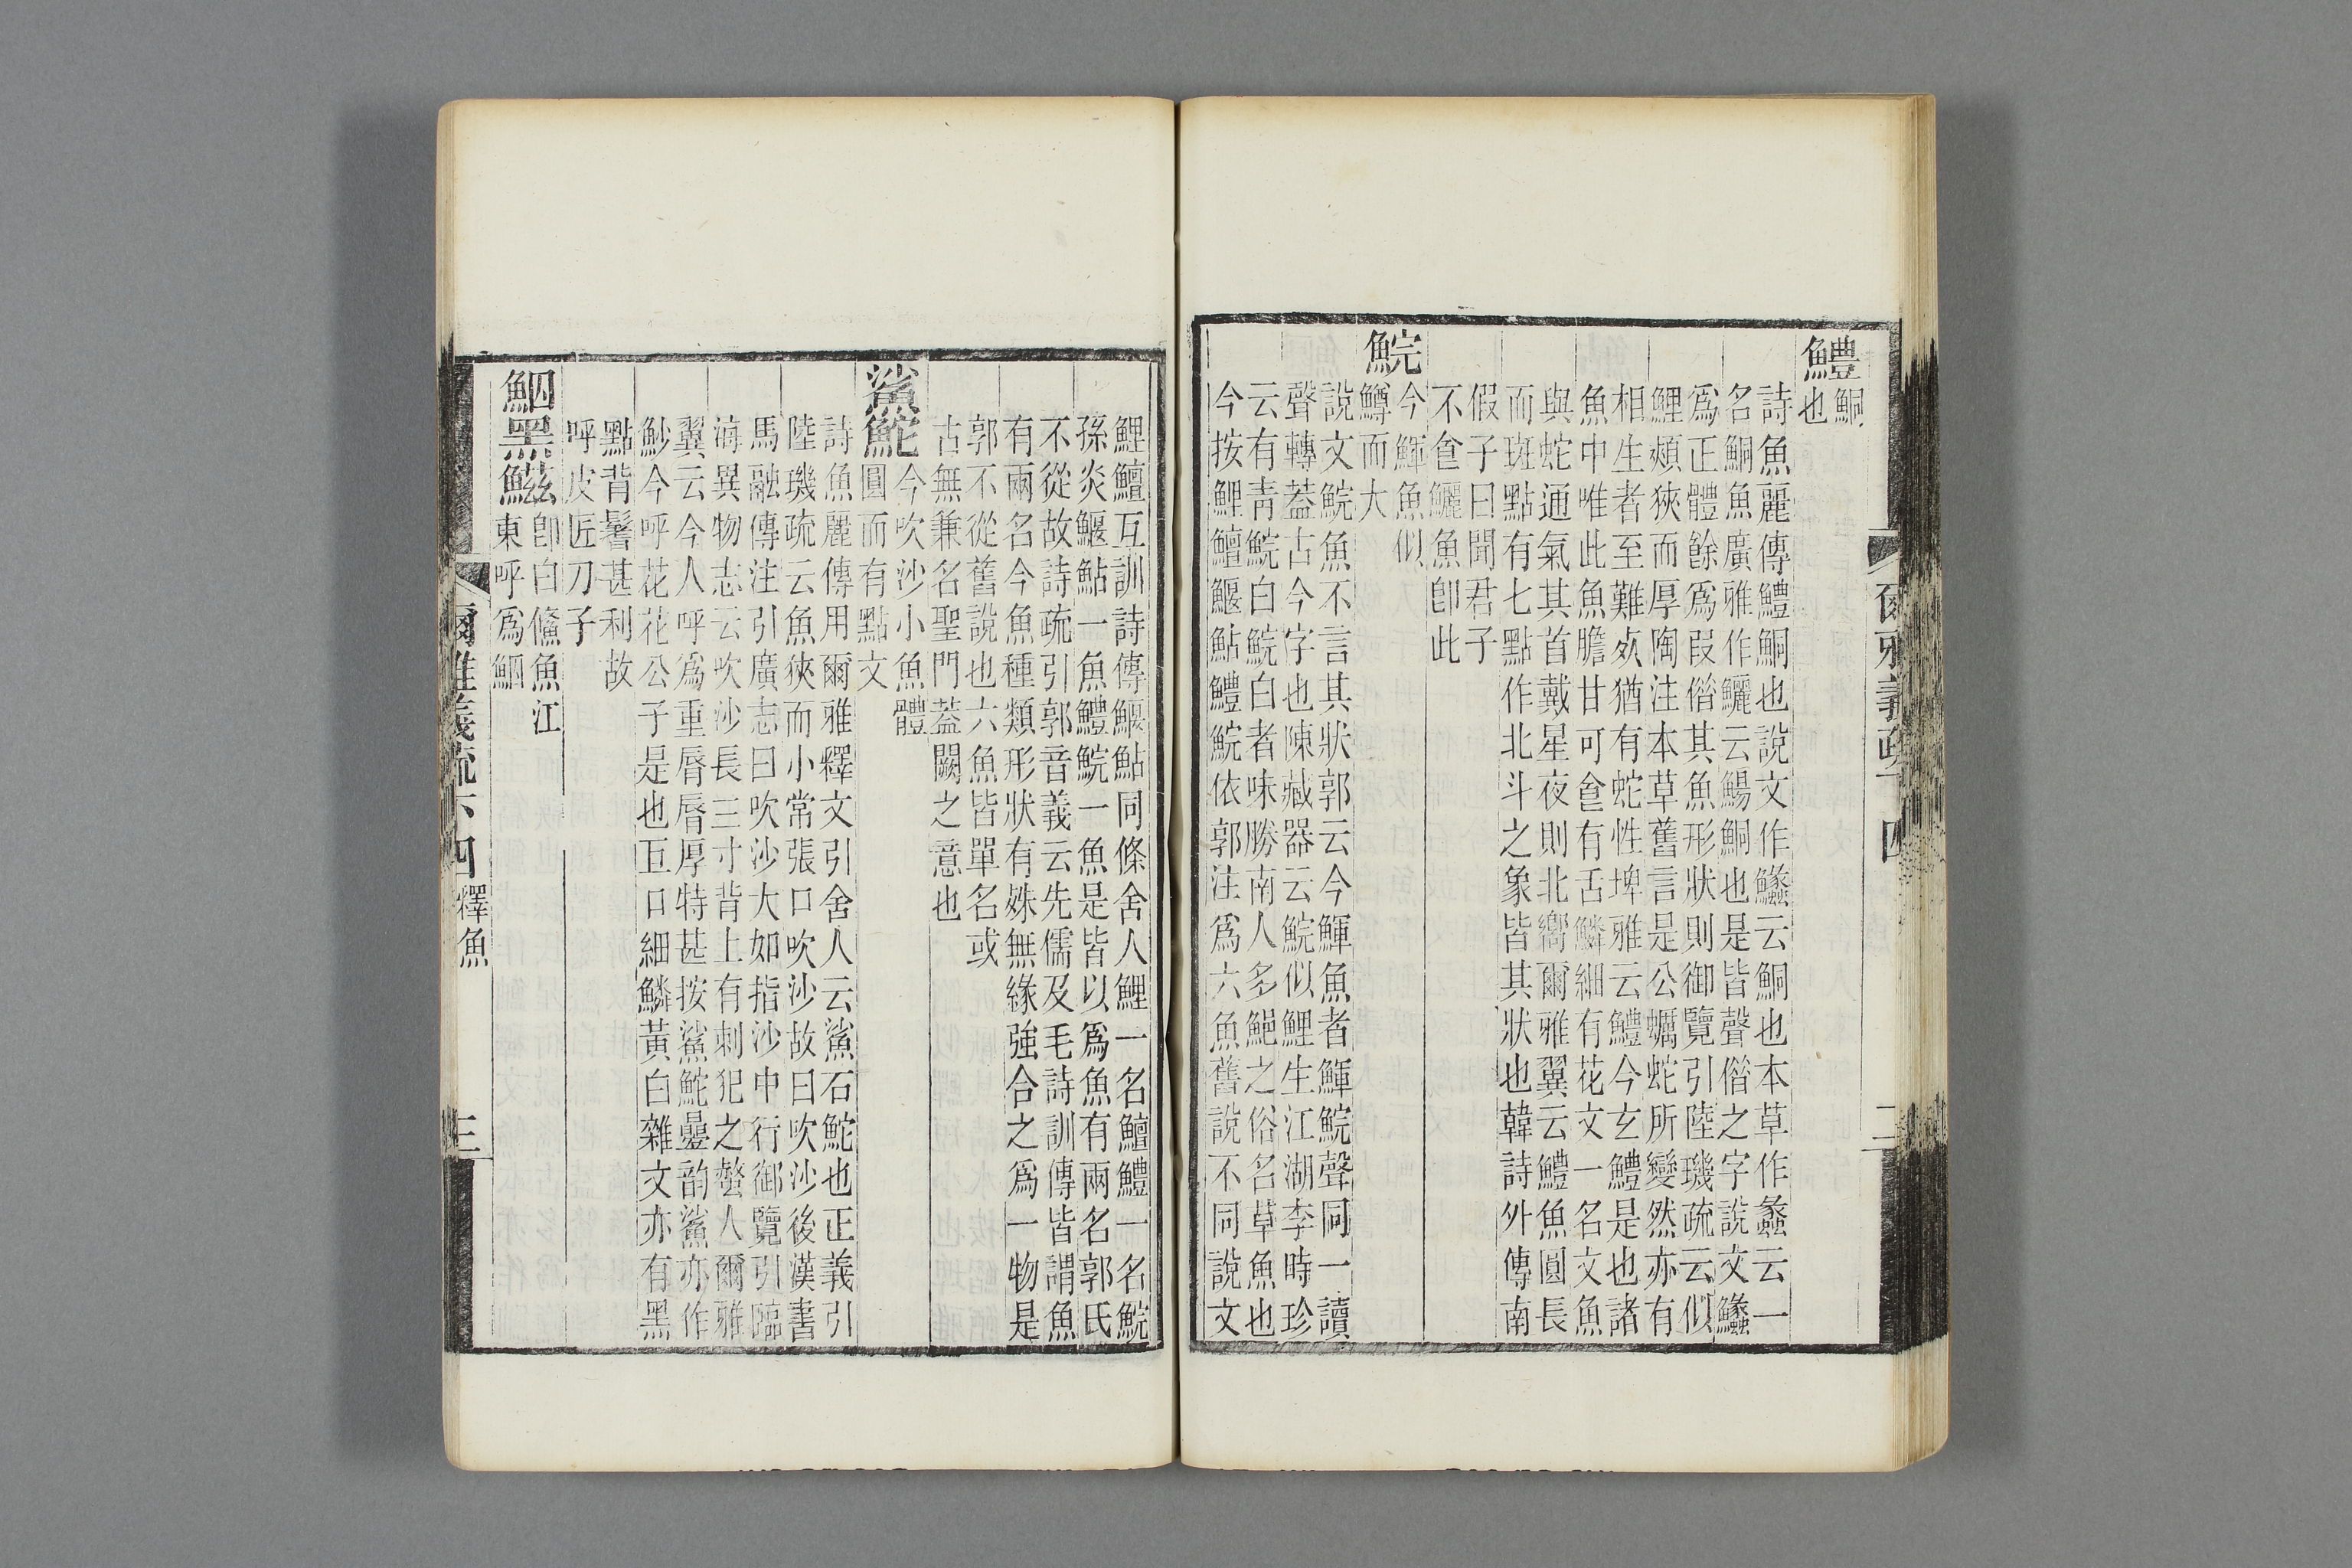 鱧鮦
也
詩魚麗傳鱧鮦也說文作鱶云鮦也本草作蠡云一
名鮦魚廣雅作鱺云鯣鮦也是皆聲偕之字說文鱶
爲正體餘爲叚偕其魚形狀則御覽引陸璣疏云似
鯉頰狹而厚陶注本草舊言是公蠣蛇所變然亦有
相生者至難死猶有蛇性埤雅云鱧今玄鱧是也諸
魚中唯此魚膽甘可食有舌鱗細有花文一名文魚
與蛇通氣其首戴星夜則北嚮爾雅翼云鱧魚圓長
而斑點有七點作北斗之象皆其狀也韓詩外傳南
假子曰聞君子
不食鱺魚卽此
鯇今鯶魚似
鱒而大
說文鯇魚不言其狀郭云今鯶魚者鯶鯇聲同一讀
聲轉葢古今字也陳藏器云鯇似鯉生江湖李時珍
云有靑鯇白鯇白者味勝南人多鮑之俗名草魚也
今按鯉鱣鰋鮎鱧鯇依郭注爲六魚舊說不同說文
爾雅義疏下四
二
鯉鱣互訓詩傳鰋鮎同條舍人鯉一名鱣鱧一名鯇
孫炎鰋鮎一魚鱧鯇一魚是皆以爲魚有兩名郭氏
不從故詩疏引郭音義云先儒及毛詩訓傳皆謂魚
有兩名今魚種類形狀有殊無緣強合之爲一物是
郭不從舊說也六魚皆單名或
古無兼名聖門葢闕之意也
鯊鮀今吹沙小魚體
圓而有點文
詩魚麗傳用爾雅釋文引舍人云鯊石鮀也正義引
陸璣疏云魚狹而小常張口吹沙故曰吹沙後漢書
馬融傳注引廣志曰吹沙大如指沙中行御覽引臨
海異物志云吹沙長三寸背上有刺犯之螫人爾雅
翼云今人呼爲重脣脣厚特甚按鯊鮀曡韵鯊亦作
魦今呼花花公子是也亙口細鱗黃白雜文亦有黑
點背鬐甚利故
呼皮匠刀子
鮂黑鰦卽白鯈魚江
東呼爲鮂
爾雅義疏下四 釋魚
三